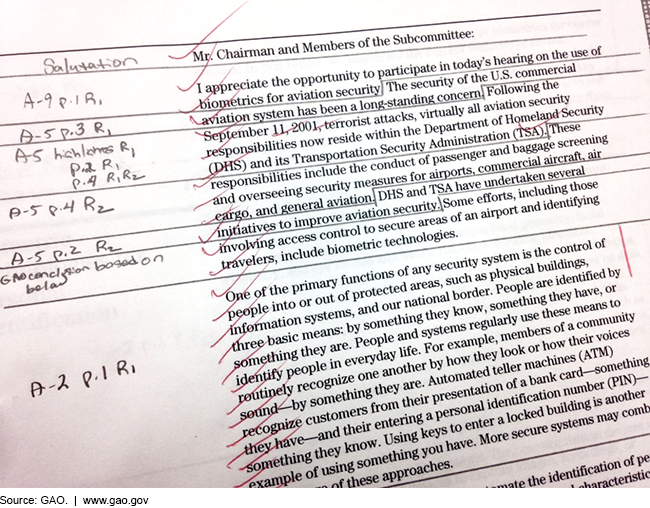 Salutation
Mr. Chairman and Members of the Subcommittee:
A-9 p.1 R1
I appreciate the opportunity to participate in today's hearing on the use of
biometrics for aviation security. The security of the U.S. commercial
aviation system has been a long-standing concern. Following the
A-5 p.3 R1
September 11, 2001, terrorist attacks, virtually all aviation security
A-5 highlights R1
responsibilities now reside within the Department of Homeland Security
p.2 R1
(DHS) and its Transportation Security Administration (TSA). These
p.4 R1 R2
responsibilities include the conduct of passenger and baggage screening
and overseeing security measures for airports, commercial aircraft, air
A-5 p.4 R2
cargo, and general aviation. DHS and TSA have undertaken several
initiatives to improve aviation security. Some efforts, including those
A-5 p.2 R2
involving access control to secure areas of an airport and identifying
GAO conclusion based on
travelers, include biometric technologies.
below
One of the primary functions of any security system is the control of
people into or out of protected areas, such as physical buildings,
information systems, and our national border. People are identified by
three basic means: by something they know, something they have, or
something they are. People and systems regularly use these means to
identify people in everyday life. For example, members of a community
routinely recognize one another by how they look or how their voices
A-2 p.1 R1
sound—by something they are. Automated teller machines (ATM)
recognize customers from their presentation of a bank card—something
they have—and their entering a personal identification number (PIN)—
something they know. Using keys to enter a locked building is another
example of using something you have. More secure systems may comb
of these approaches.
mate the identification of pe
characteristic
Source: GAO. | www.gao.gov